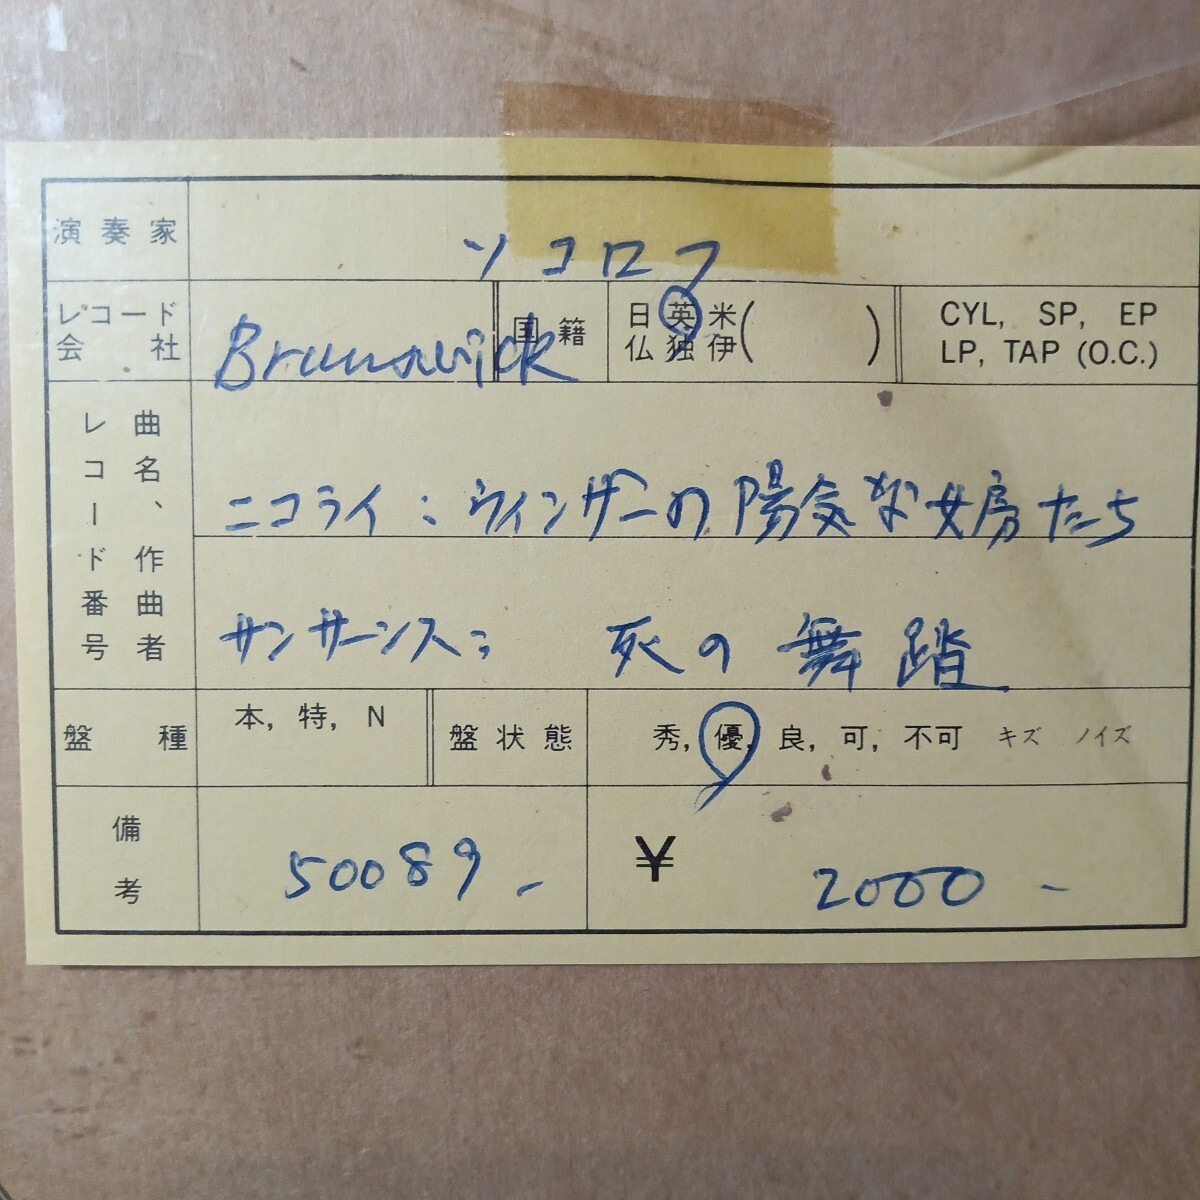 演奏家 ソコロフ
レコード会社 Brunswick 国籍 日 英 米 ( )
仏 独 伊
CYL, SP, EP
LP, TAP (O.C.)
曲名、作曲者
レコード番号
ニコライ:ウィンザーの陽気な女房たち
サンサーンス: 死の舞踏
盤種 本, 特, N 盤状態 秀, 優, 良, 可, 不可 キズ ノイズ
備考 50089 - ¥ 2000 -